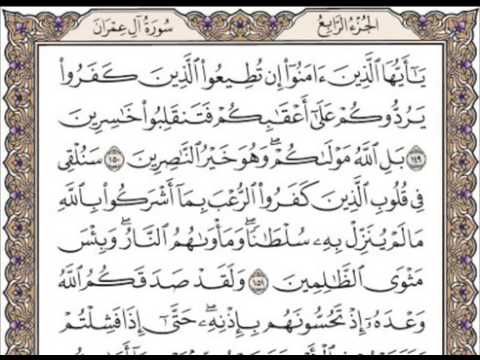 الجزء الرابع
سورة آل عمران
يَٰٓأَيُّهَا ٱلَّذِينَ ءَامَنُوٓا۟ إِن تُطِيعُوا۟ ٱلَّذِينَ كَفَرُوا۟
يَرُدُّوكُمْ عَلَىٰٓ أَعْقَٰبِكُمْ فَتَنقَلِبُوا۟ خَٰسِرِينَ
١٤٩ بَلِ ٱللَّهُ مَوْلَىٰكُمْ ۖ وَهُوَ خَيْرُ ٱلنَّٰصِرِينَ ١٥٠ سَنُلْقِى
فِى قُلُوبِ ٱلَّذِينَ كَفَرُوا۟ ٱلرُّعْبَ بِمَآ أَشْرَكُوا۟ بِٱللَّهِ
مَا لَمْ يُنَزِّلْ بِهِۦ سُلْطَٰنًا ۖ وَمَأْوَىٰهُمُ ٱلنَّارُ ۚ وَبِئْسَ
مَثْوَى ٱلظَّٰلِمِينَ ١٥١ وَلَقَدْ صَدَقَكُمُ ٱللَّهُ
وَعْدَهُۥٓ إِذْ تَحُسُّونَهُم بِإِذْنِهِۦ ۖ حَتَّىٰٓ إِذَا فَشِلْتُمْ